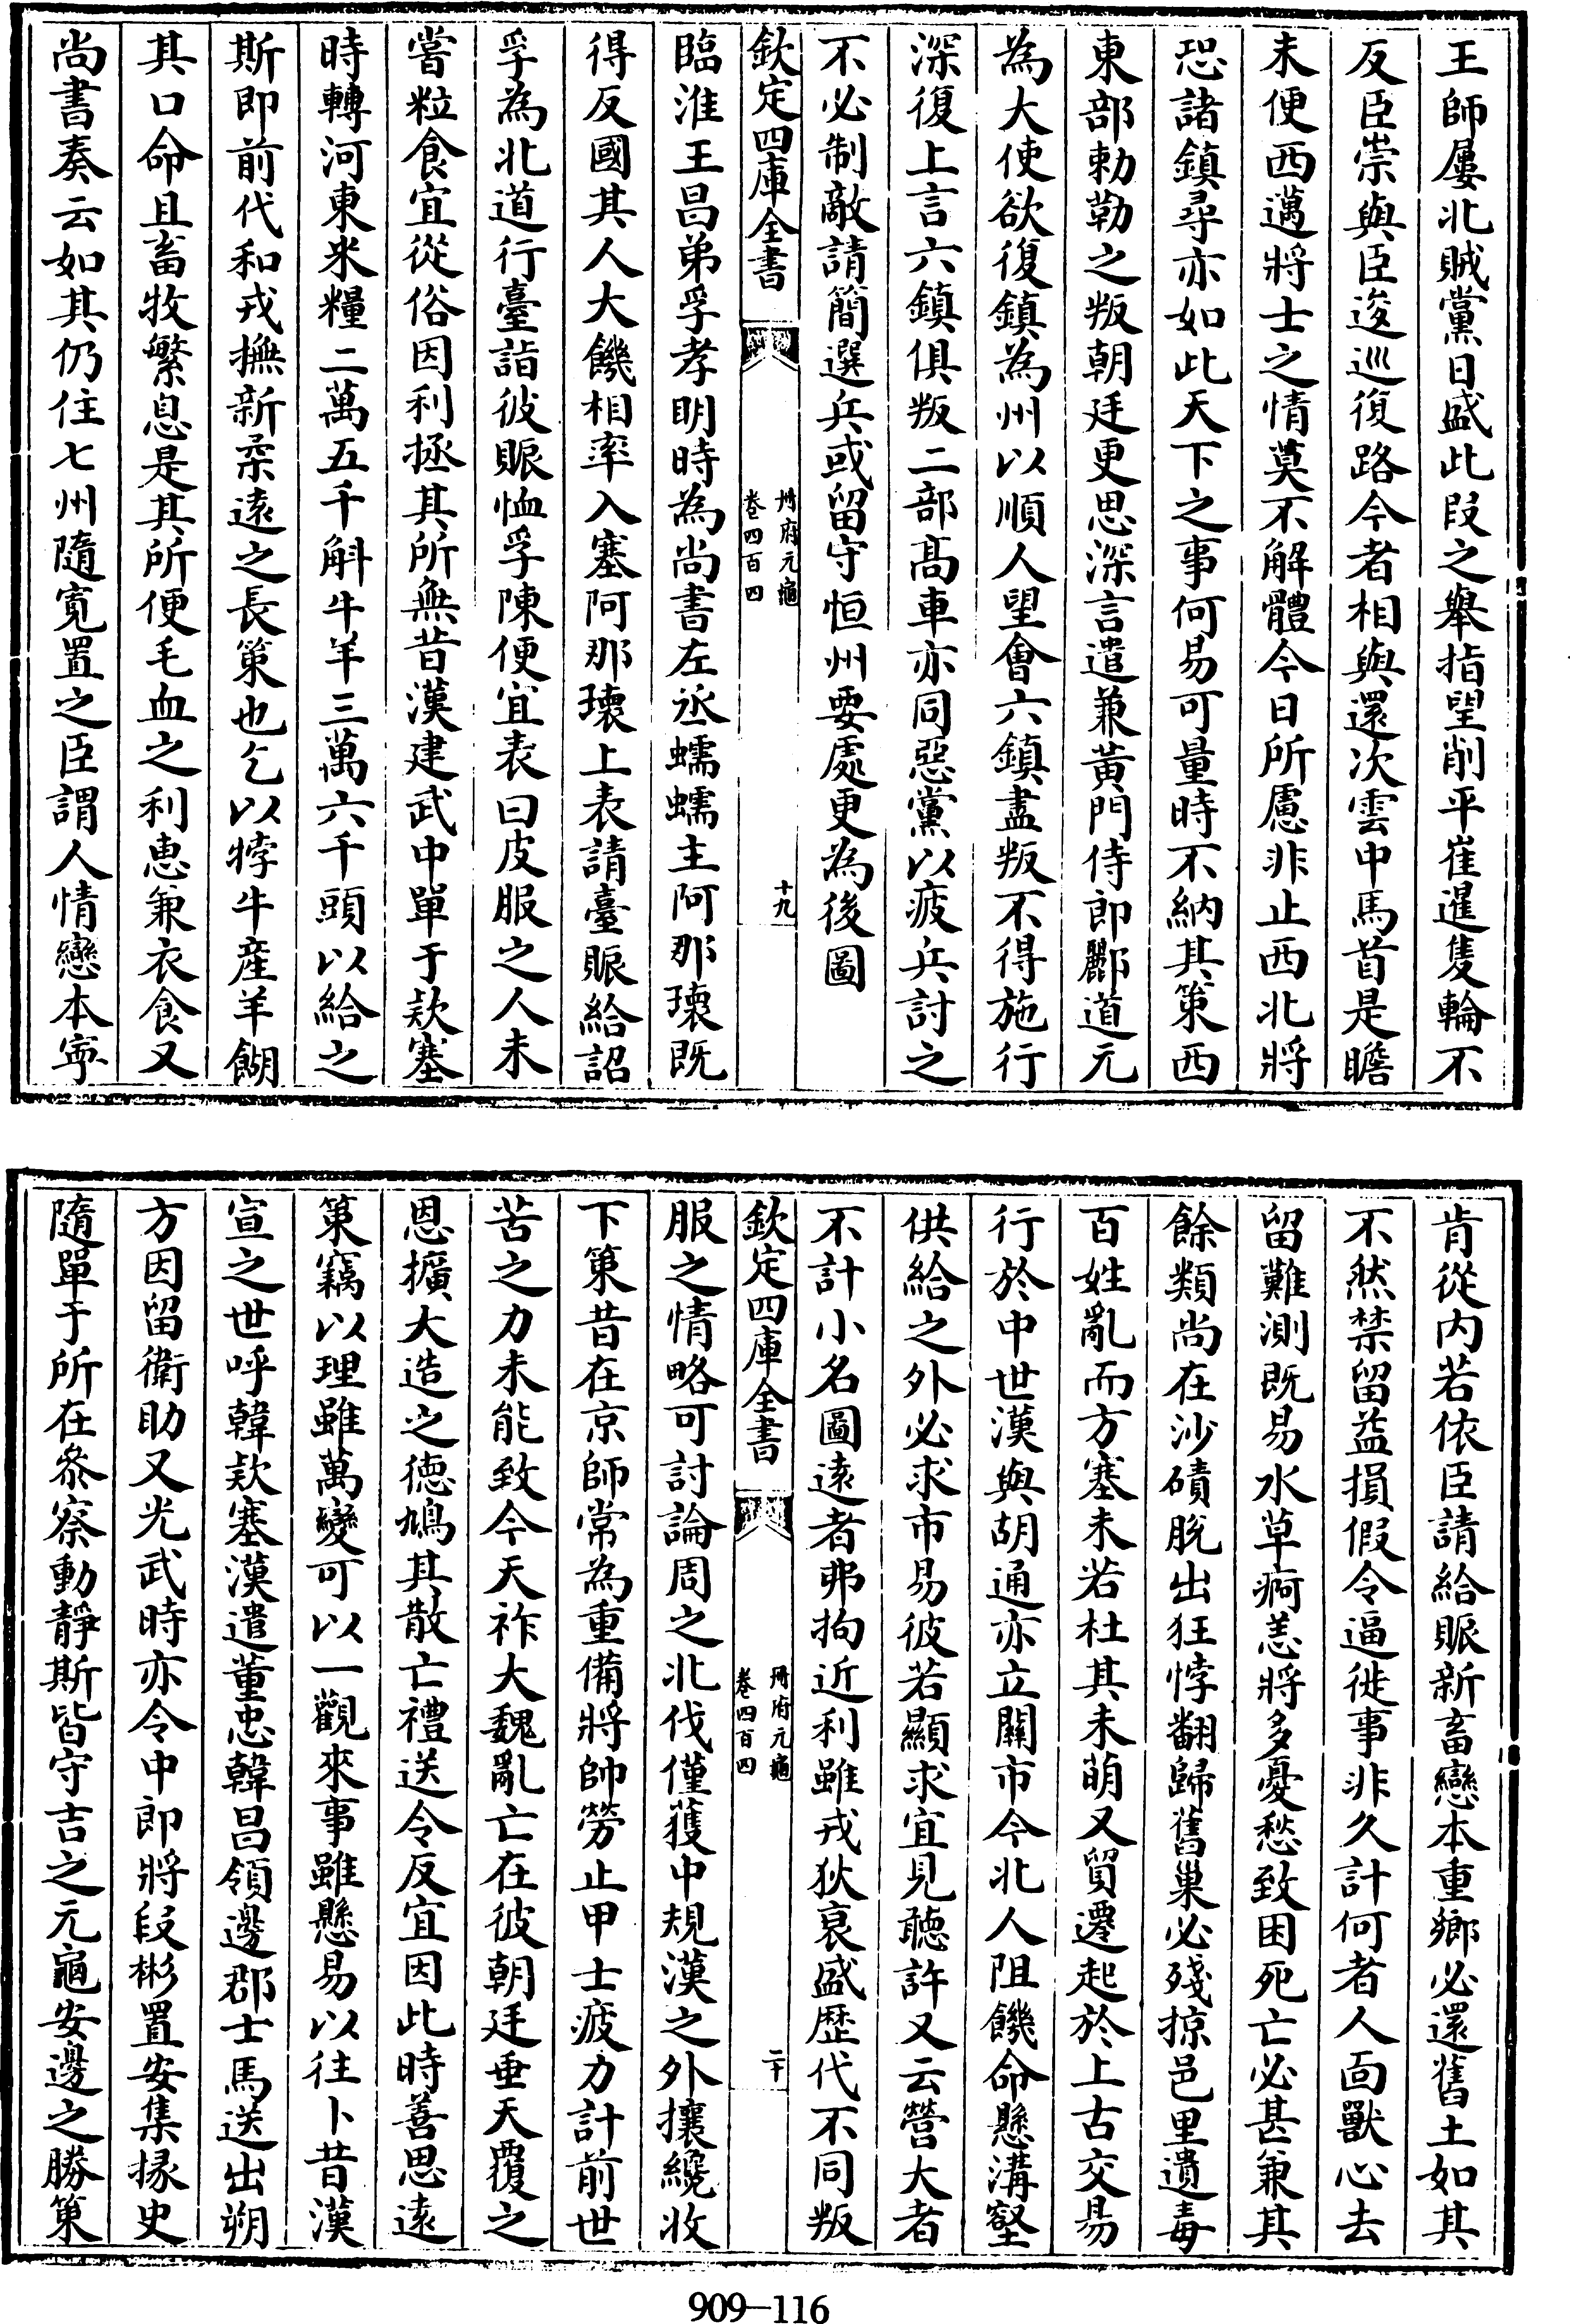 王師屢北賊黨日盛此段之舉指望削平崔暹隻輪不
反臣崇與臣逡巡復路今者相與還次雲中馬首是瞻
未便西邁將士之情莫不解體今日所慮非止西北將
恐諸鎮尋亦如此天下之事何易可量時不納其策西
東部勅勒之叛朝廷更思深言遣兼黃門侍郎酈道元
為大使欲復鎮為州以順人望會六鎮盡叛不得施行
深復上言六鎮俱叛二部髙車亦同惡黨以疲兵討之
不必制敵請簡選兵或留守恒州要處更為後圖
欽定四庫全書
冊府元龜
卷四百四
十九
臨淮王昌弟孚孝明時為尚書左丞蠕蠕主阿那瓌既
得反國其人大饑相率入塞阿那瓌上表請臺賑給詔
孚為北道行臺詣彼賑恤孚陳便宜表曰皮服之人未
嘗粒食宜從俗因利拯其所無昔漢建武中單于欵塞
時轉河東米糧二萬五千斛牛羊三萬六千頭以給之
斯即前代和戎撫新柔逺之長策也乞以牸牛產羊餬
其口命且畜牧繁息是其所便毛血之利恵兼衣食又
尚書奏云如其仍住七州隨寬置之臣謂人情戀本寜
肯從內若依臣請給賑新畜戀本重鄉必還舊土如其
不然禁留益損假令逼徙事非久計何者人面獸心去
留難測既易水草痾恙將多憂愁致困死亡必甚兼其
餘類尚在沙磧脫出狂悖翻歸舊巢必殘掠邑里遺毒
百姓亂而方塞未若杜其未萌又貿遷起於上古交易
行於中世漢與胡通亦立關市今北人阻饑命懸溝壑
供給之外必求市易彼若顯求宜見聽許又云營大者
不計小名圖逺者弗拘近利雖戎狄衰盛歷代不同叛
欽定四庫全書
冊府元龜
卷四百四
二十
服之情略可討論周之北伐僅獲中規漢之外攘纔收
下策昔在京師常為重備將帥勞止甲士疲力計前世
苦之力未能致今天祚大魏亂亡在彼朝廷垂天覆之
恩擴大造之徳鳩其散亡禮送令反宜因此時善思逺
策竊以理雖萬變可以一觀來事雖懸易以往卜昔漢
宣之世呼韓欵塞漢遣董忠韓昌領邊郡士馬送出朔
方因留衛助又光武時亦令中郎將段彬置安集掾史
隨單于所在叅察動靜斯皆守吉之元龜安邊之勝策
909—116